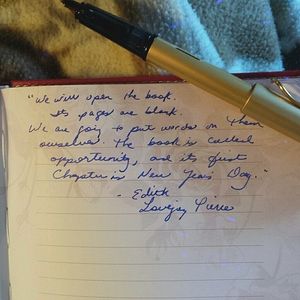 "We will open the book.
Its pages are blank.
We are going to put words on them
ourselves. The book is called
opportunity, and its first
Chapter is New Year's Day."
- Edith
Lovejoy Pierce